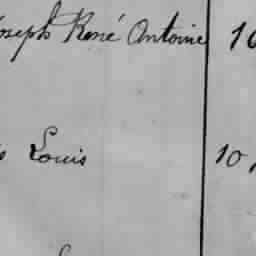 Joseph René Antoine 10
s Louis 10